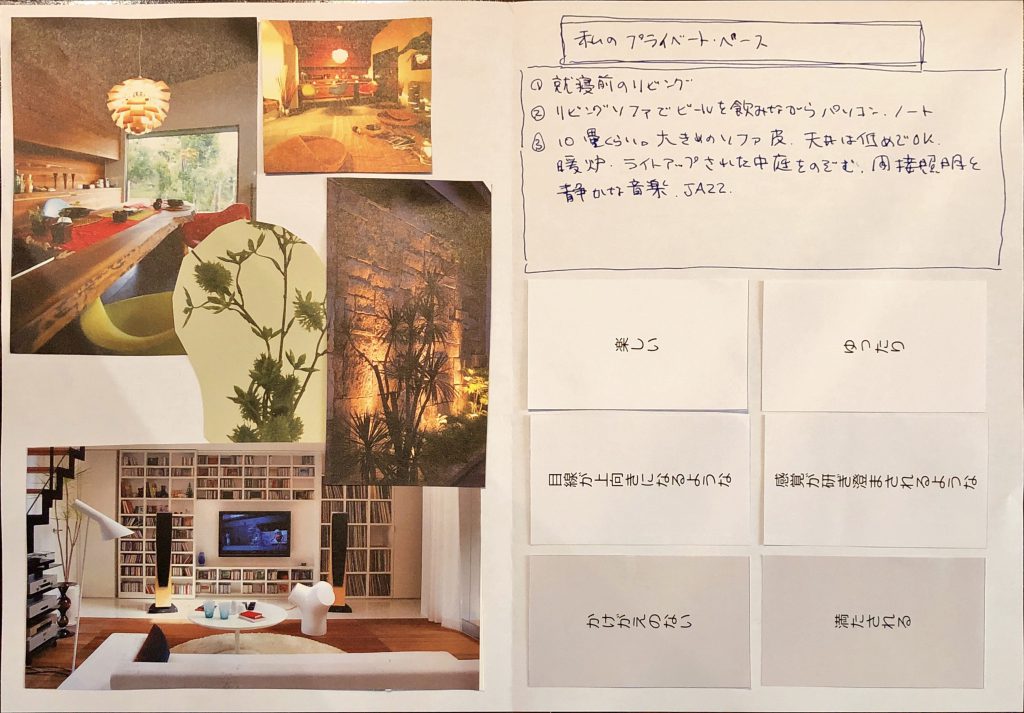 私の プライベート・ベース
① 就寝前のリビング
② リビングソファでビールを飲みながら パソコン、ノート
③ 10畳くらい。大きめのソファ 皮、天井は低めでOK.
暖炉、ライトアップされた中庭をのぞむ、間接照明と
静かな音楽、JAZZ.
楽しい
ゆったり
目線が上向きになるような
感覚が研ぎ澄まされるような
かけがえのない
満たされる